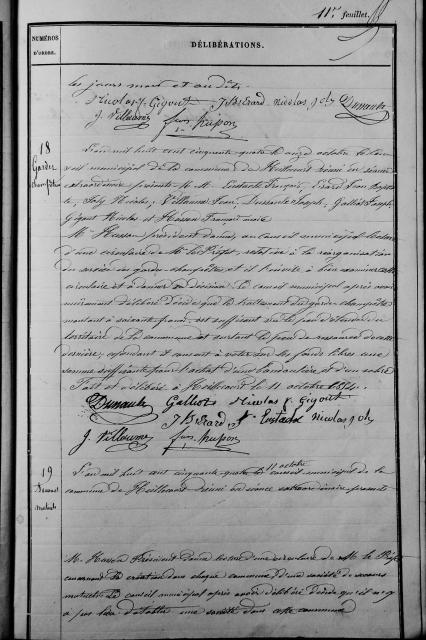 11.e feuillet.
NUMÉROS D'ORDRE.
DÉLIBÉRATIONS.
les jours mois et an dits
Nicolas J. Gigout J B Erard Nicolas Joly Dussaulx
J. Villaume fois husson
18
Gardes champêtres
L'an mil huit cent cinquante quatre le onze octobre le conseil
municipal de la commune de réuni en séance
extraordinaire présents M.M. Eustache François, Erard Jean Baptiste,
Joly Nicolas, Villaume Jean, Dussaulx Joseph, Galliot Joseph
Gigout Nicolas et Husson François maire
Mr Husson président donne au conseil municipal lecture
d'une circulaire de Mr le Préfet, relative à la réorganisation
du service des gardes champêtres et il l'invite à bien examiner cette
circulaire et à donner sa décision. Le conseil municipal après avoir
mûrement délibéré décide que le traitement du garde champêtre
montant à soixante francs, est suffisant vu le peu d'étendue du
territoire de la commune et surtout le peu de ressources de cette
dernière; cependant il consent à voter sur les fonds libres une
somme suffisante pour l'achat d'une bandoulière et d'un sabre
Fait et délibéré à le 11 octobre 1854.
Dussaulx Galliot Nicolas J. Gigout
J B Erard f Eustache Nicolas Joly
J. Villaume fois husson
19
Secours mutuels
L'an mil huit cent cinquante quatre le 11 octobre conseil municipal de la
commune de réuni en séance extraordinaire présents
M. Husson Président donne lecture d'une circulaire de M le Préfet
concernant la création dans chaque commune d'une société de secours
mutuels. Le conseil municipal après avoir délibéré Décide qu'il n'y
a pas lieu d'établir une société dans cette commune